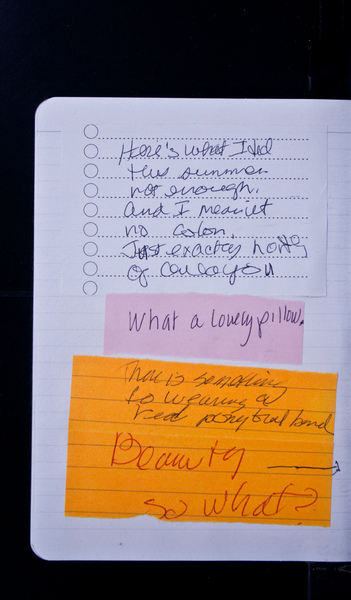 Here's what I did
this summer
not enough.
and I meant
no colon.
Just exactly
of
What a lovely pillow.
There is something
to wearing a
red ponytail band
Beauty
so what?